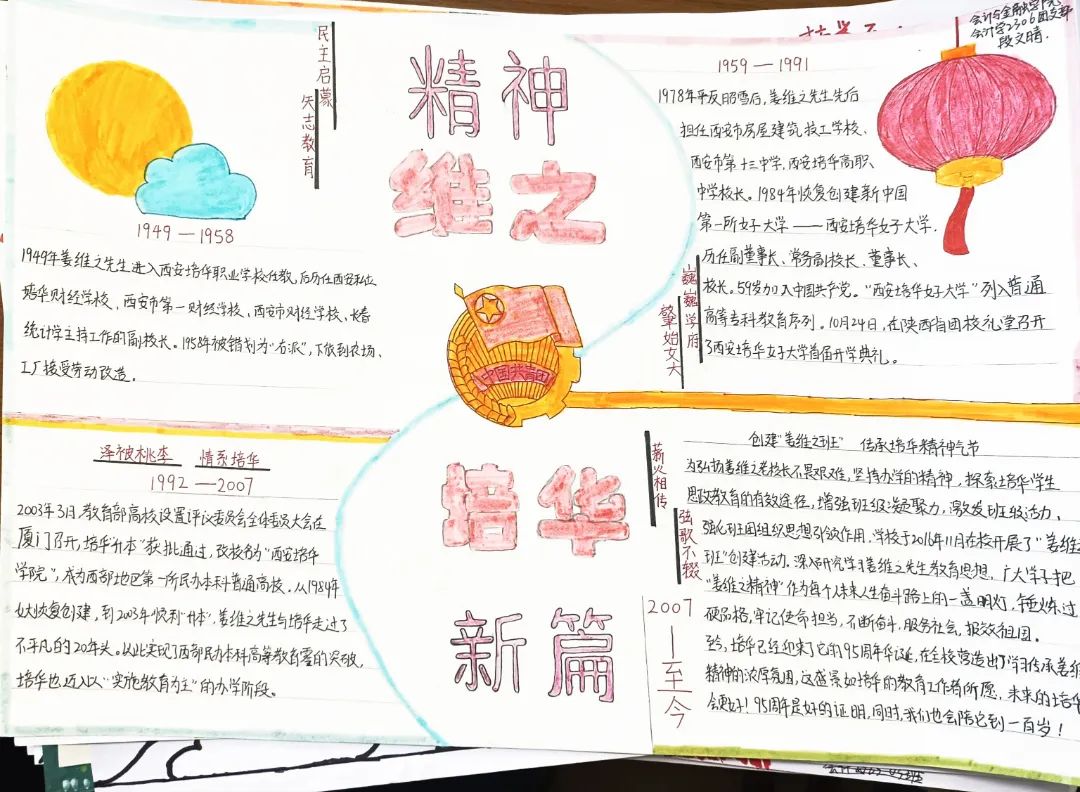 会计与金融学院
会计学2306团支部
段文晴.
精神
维之
培华
新篇
中国共青团
民主启蒙
矢志教育
1949 — 1958
1949年姜维之先生进入西安培华职业学校任教,后历任西安私立
培华财经学校、西安市第一财经学校、西安市财经学校、长春
统计学主持工作的副校长。1958年被错划为"右派",下放到农场、
工厂接受劳动改造。
1959 — 1991
1978年平反昭雪后,姜维之先生先后
担任西安市房屋建筑技工学校、
西安市第十三中学,西安培华高职、
中学校长。1984年恢复创建新中国
第一所女子大学 —— 西安培华女子大学.
历任副董事长、常务副校长、董事长、
校长。59岁加入中国共产党。"西安培华女子大学"列入普通
高等专科教育序列。10月24日,在陕西省团校礼堂召开
了西安培华女子大学首届开学典礼。
巍巍学府
肇始女大
泽被桃李 情系培华
1992 — 2007
2003年3月,教育部高校设置评议委员会全体委员大会在
厦门召开,培华升本"获批通过,改校名为"西安培华
学院",成为西部地区第一所民办本科普通高校。从1984年
女大恢复创建,到2003年顺利"升本",姜维之先生与培华走过了
不平凡的20年头。从此实现了西部民办本科高等教育零的突破,
培华也迈入以"实施教育为主"的办学阶段。
薪火相传
弦歌不辍
2007
—
至今
创建"姜维之班" 传承培华精神气节
为弘扬姜维之老校长不畏艰难,坚持办学的精神,探索培华学生
思政教育的有效途径,增强班级凝聚力,激发班级活力,
强化班团组织思想引领作用,学校于2016年11月在校开展了"姜维之
班"创建活动。深入研究学习姜维之先生教育思想,广大学子把
"姜维之精神"作为每个人未来人生奋斗路上的一盏明灯,锤炼过
硬品格,牢记使命担当,不断奋斗,服务社会,报效祖国。
至今,培华已经迎来了它的95周年华诞,在全校营造出了学习传承姜维
精神的浓厚氛围,这盛景如培华的教育工作者所愿,未来的培华
会更好!95周年是好的证明,同时,我们也会陪它到一百岁!